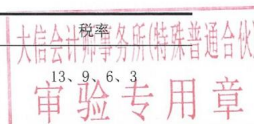 税率
大信会计师事务所(特殊普通合伙)
13、9、6、3
审验专用章